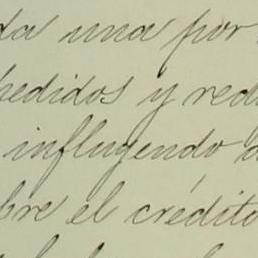 da una por
pedidos y red
influyendo
bre el crédito